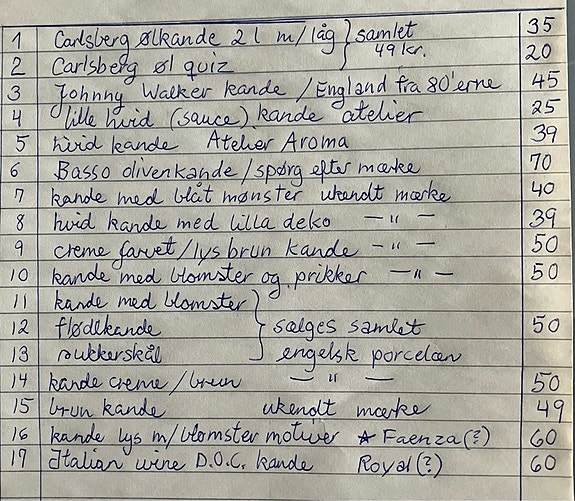 1 Carlsberg ølkande 2 l m/låg } samlet 35
2 Carlsberg øl quiz 49 kr. 20
3 Johnny Walker kande / England fra 80'erne 45
4 lille hvid (sauce) kande atelier 25
5 hvid kande Atelier Aroma 39
6 Basso olivenkande / spørg efter mærke 70
7 kande med blåt mønster ukendt mærke 40
8 hvid kande med lilla deko — " — 39
9 creme farvet / lys brun kande — " — 50
10 kande med blomster og prikker — " — 50
11 kande med blomster
12 flødekande } sælges samlet 50
13 sukkerskål engelsk porcelæn
14 kande creme / brun — " — 50
15 brun kande ukendt mærke 49
16 kande lys m/blomster motiver * Faenza (?) 60
17 Italian wine D.O.C. kande Royal (?) 60